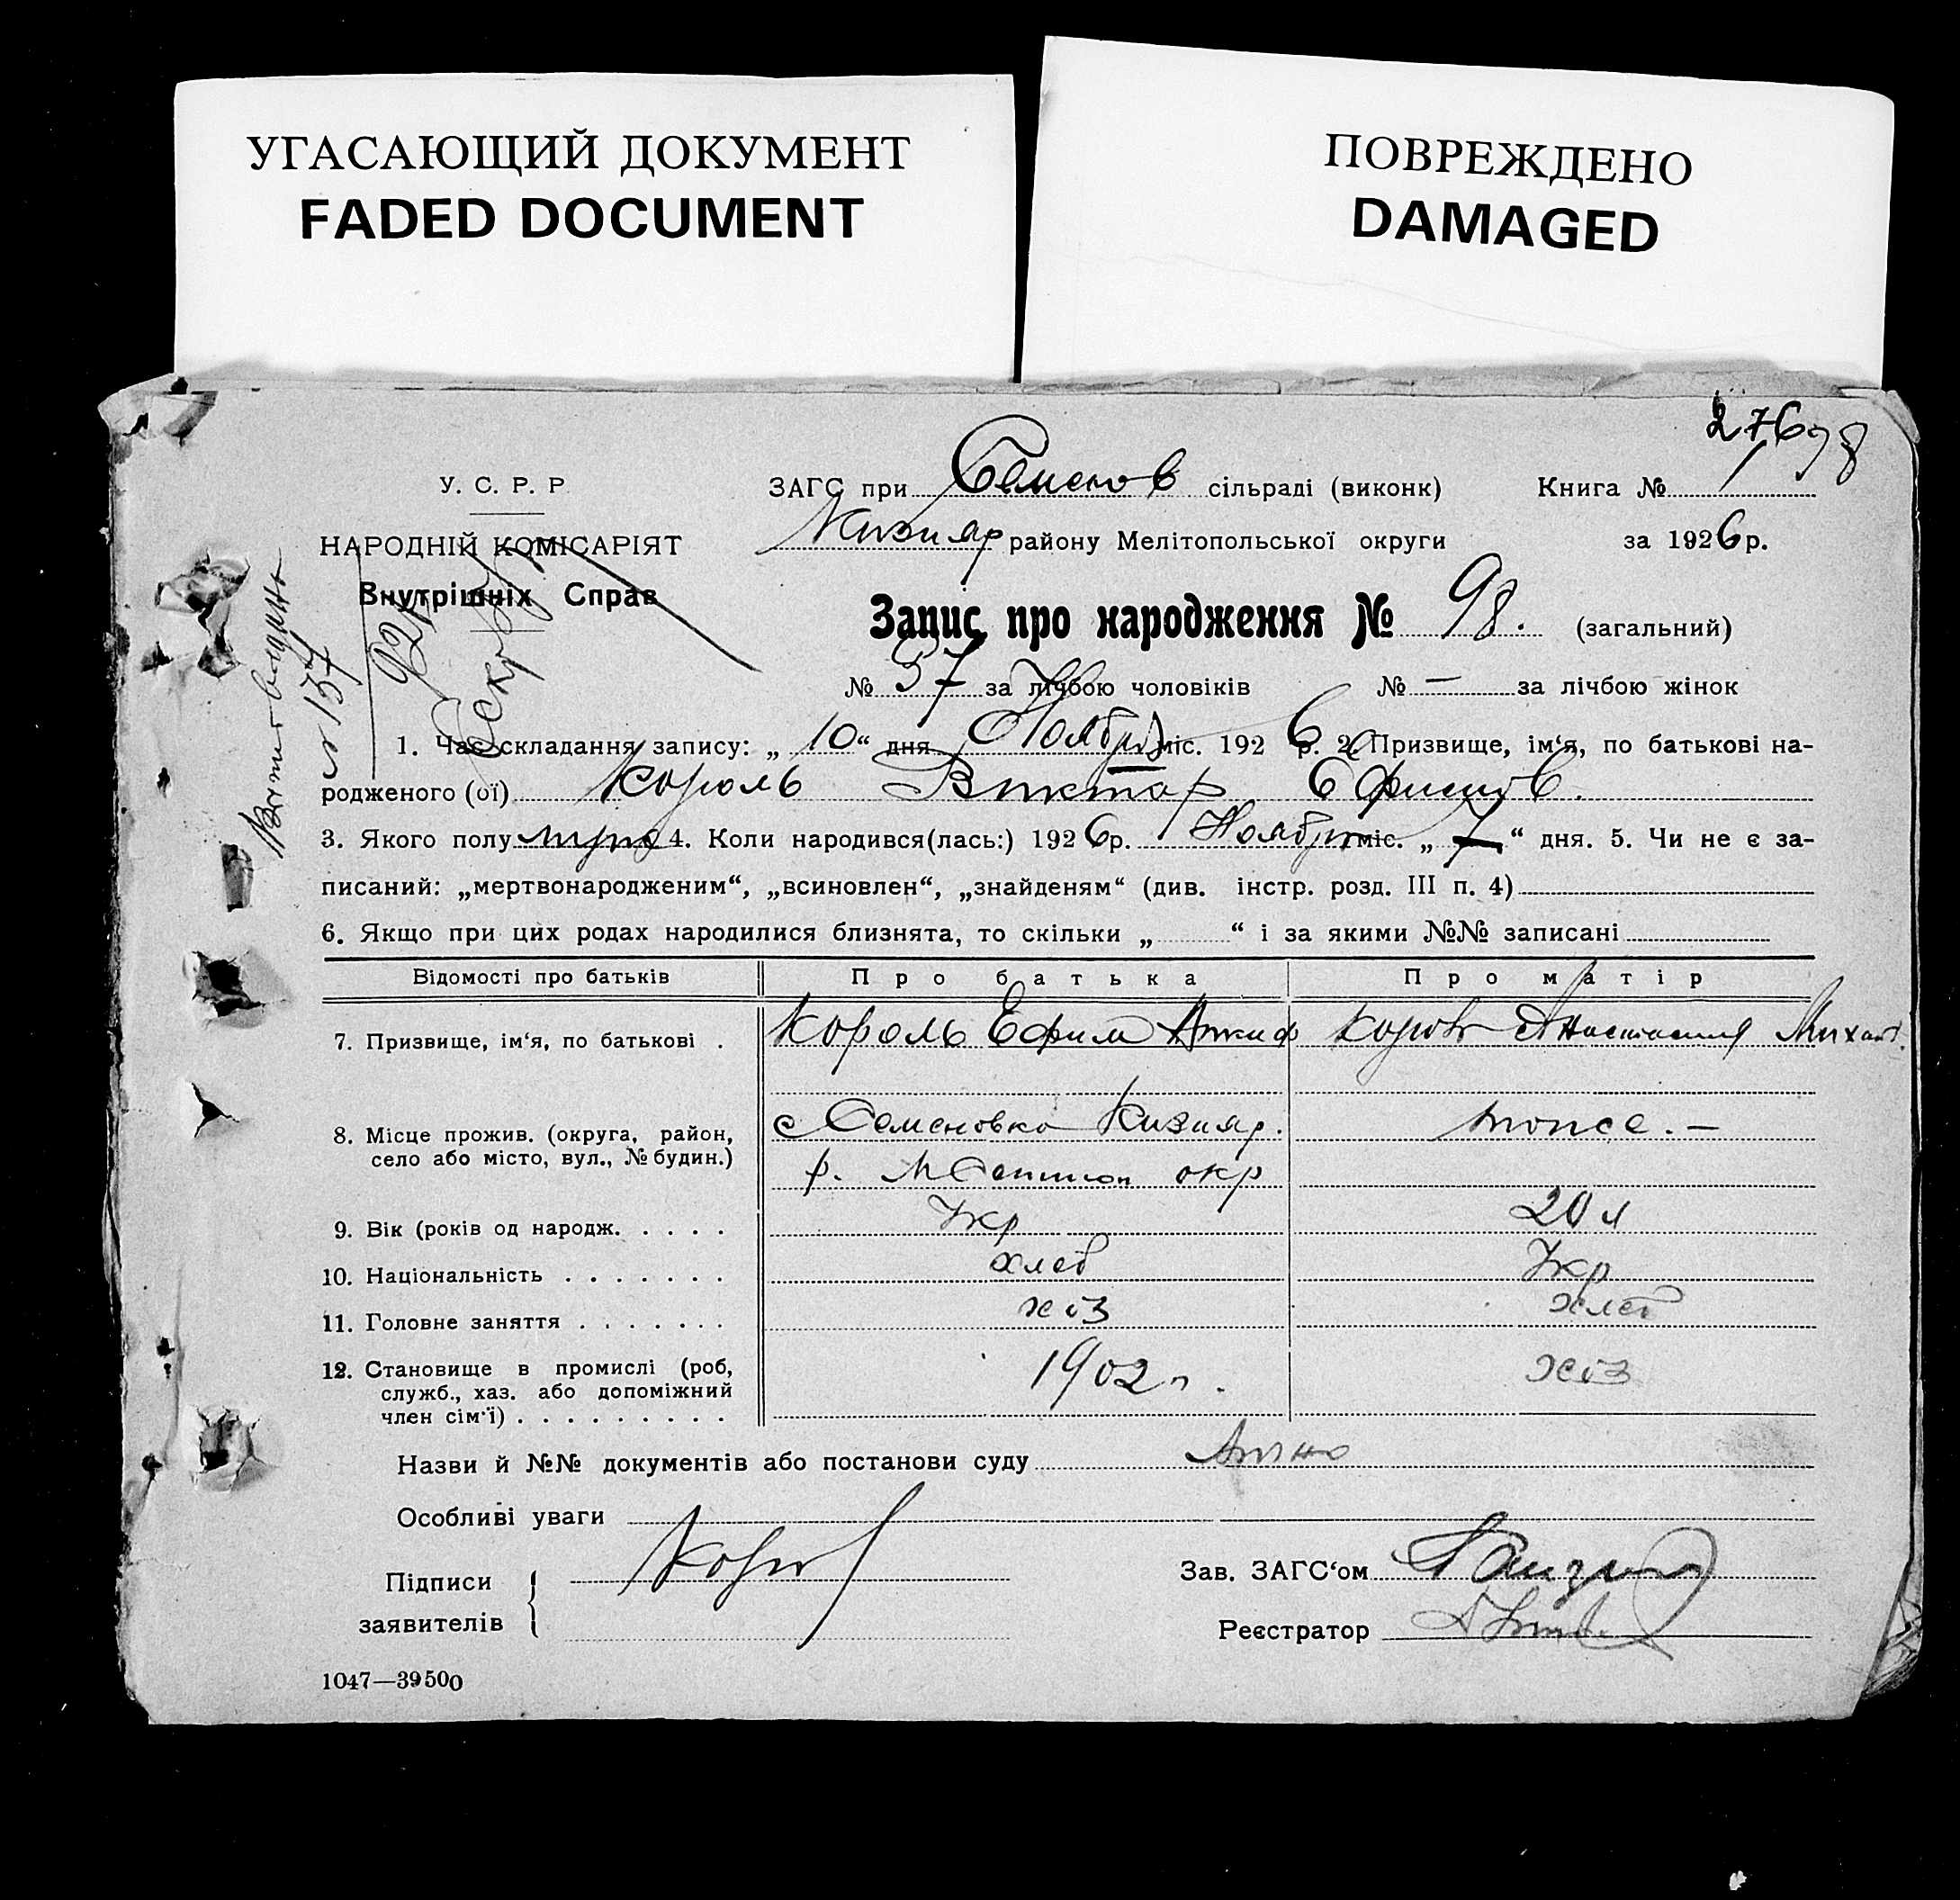 УГАСАЮЩИЙ ДОКУМЕНТ
FADED DOCUMENT
ПОВРЕЖДЕНО
DAMAGED
276 98
У. С. Р. Р
НАРОДНІЙ КОМІСАРІЯТ
Внутрішніх Справ
ЗАГС при Семенов сільраді (виконк) Книга № 1
Кизияр району Мелітопольської округи за 1926 р.
Запис про народження № 98. (загальний)
№ 57 за лічбою чоловіків № — за лічбою жінок
1. Час складання запису: „ 10 “ дня Ноября міс. 192 6 р. 2. Призвище, ім‘я, по батькові на-
родженого (ої) Король Виктор Ефимов.
3. Якого полу муж 4. Коли народився(лась:) 192 6 р. Ноября міс. „ 7 “ дня. 5. Чи не є за-
писаний: „мертвонародженим“, „всиновлен“, „знайденям“ (див. інстр. розд. III п. 4)
6. Якщо при цих родах народилися близнята, то скільки „ “ і за якими №№ записані
Відомості про батьків Про батька Про матір
7. Призвище, ім‘я, по батькові . Король Ефим Король Анастасия Михайл.
8. Місце прожив. (округа, район, с Семеновка Кизияр. тоже. —
село або місто, вул., № будин.) р. Мелитоп окр
9. Вік (років од народж. . . . . Укр 20 л
10. Національність . . . . . . . хлеб Укр
11. Головне заняття . . . . . . . хоз хлеб
12. Становище в промислі (роб, 1902 г. хоз
служб., хаз. або допоміжний
член сім‘ї) . . . . . . . . .
Назви й №№ документів або постанови суду
Особливі уваги
Підписи Король Зав. ЗАГС‘ом
заявителів Реєстратор
1047—39500